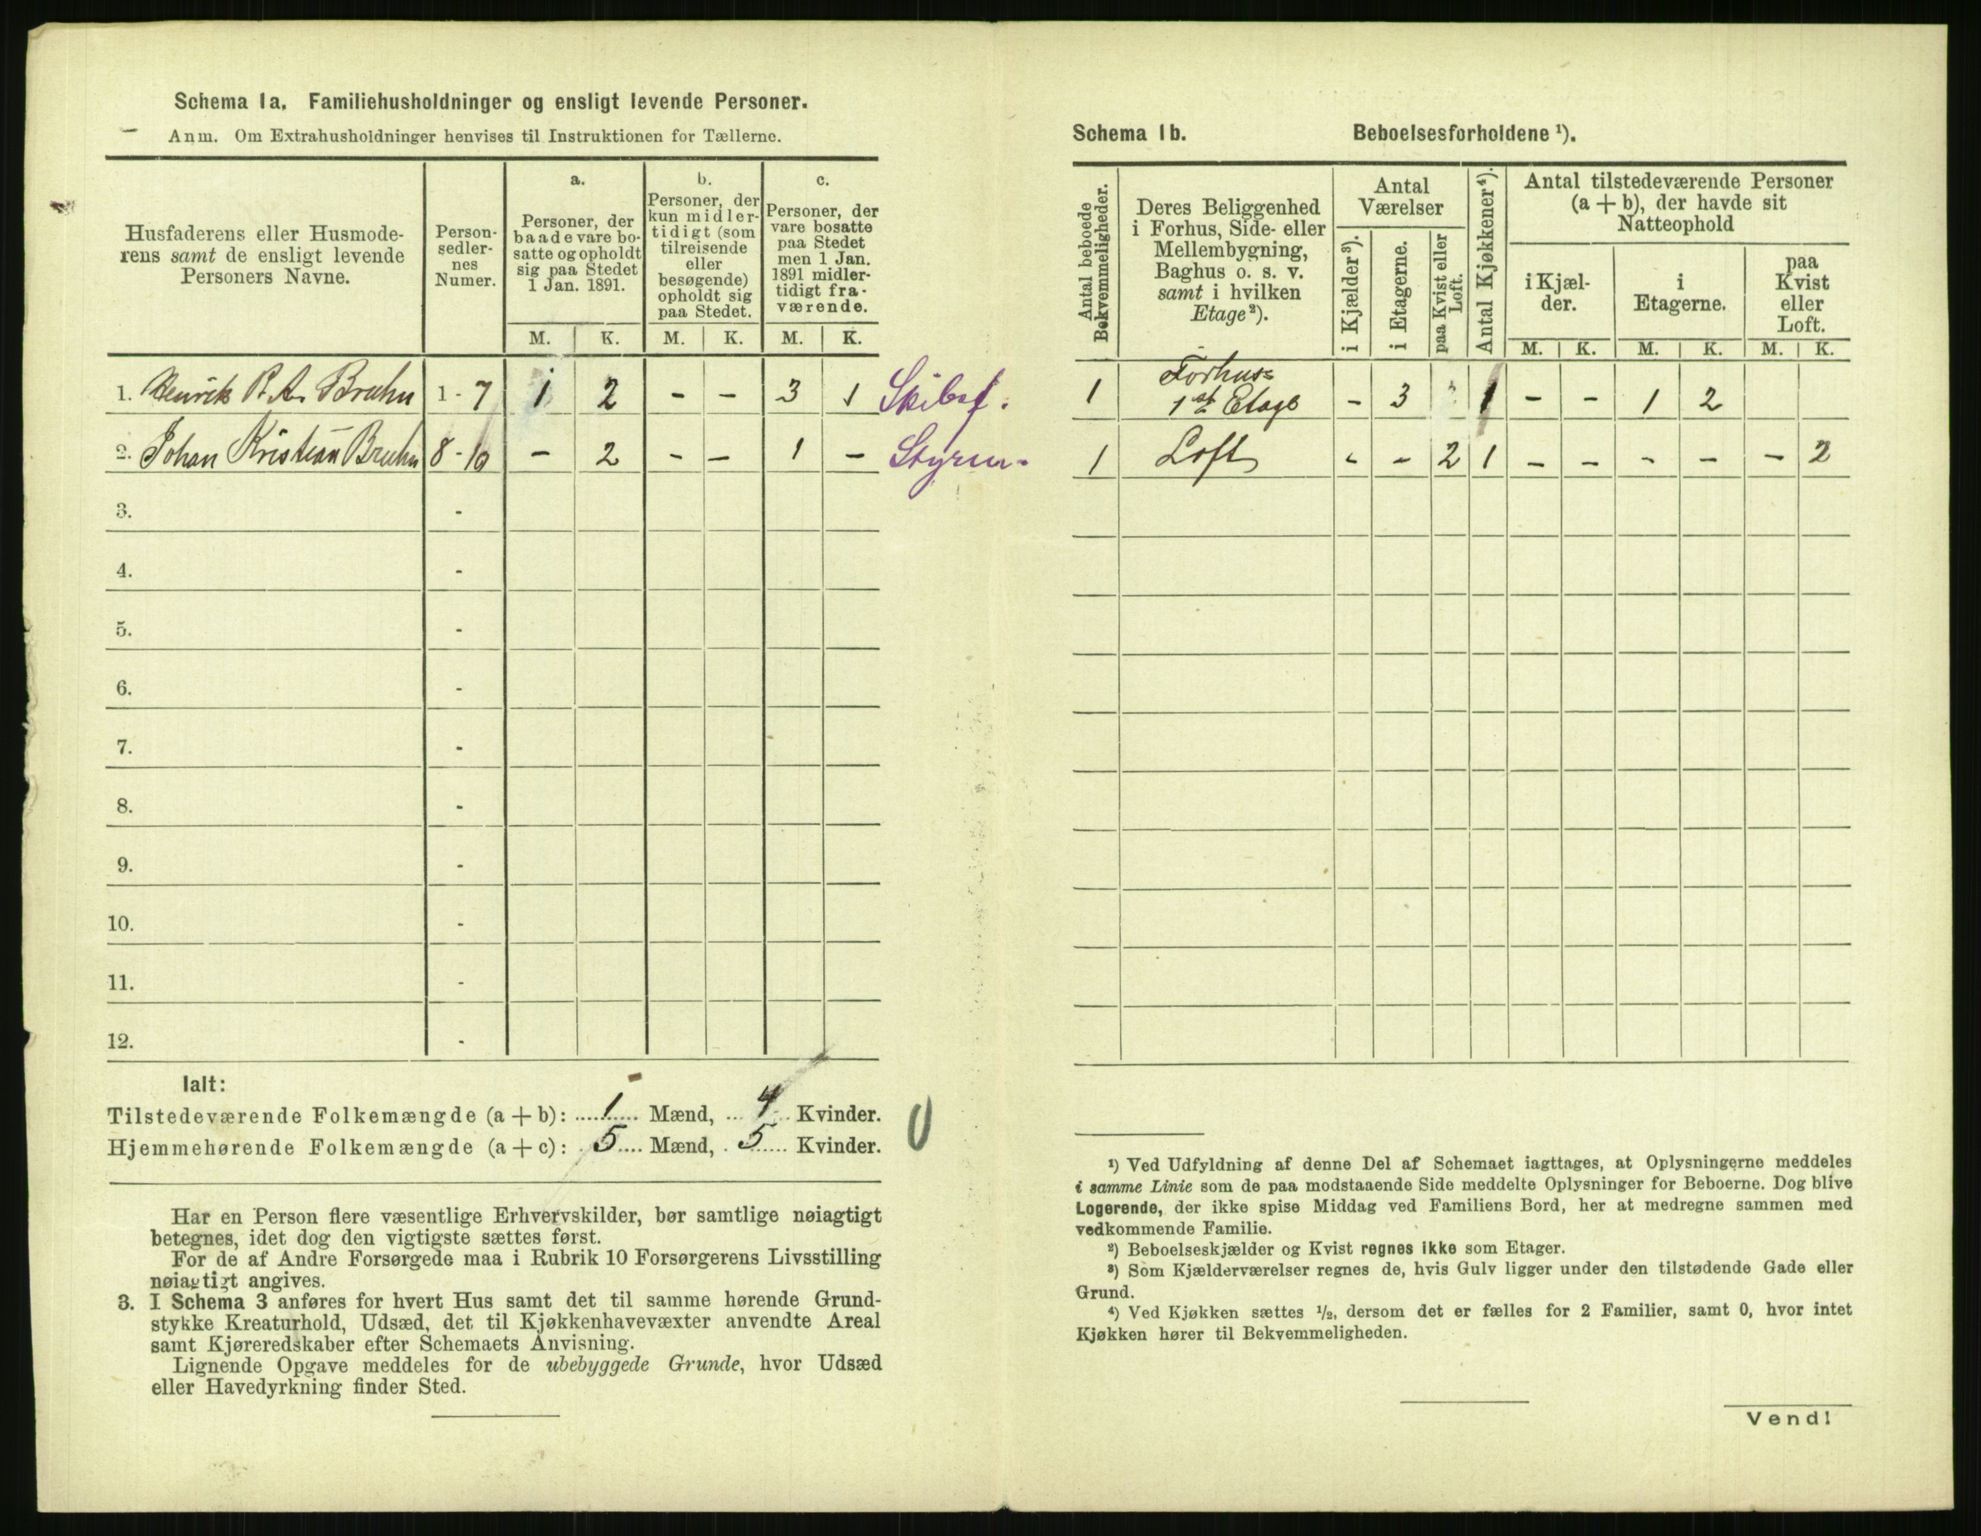 Schema 1a. Familiehusholdninger og ensligt levende Personer.
Anm. Om Extrahusholdninger henvises til Instruktionen for Tællerne.
Husfaderens eller Husmode-
rens samt de ensligt levende
Personers Navne.
Person-
sedler-
nes
Numer.
a.
Personer, der
baade vare bo-
satte og opholdt
sig paa Stedet
1 Jan. 1891.
b.
Personer, der
kun midler-
tidigt (som
tilreisende
eller
besøgende)
opholdt sig
paa Stedet.
c.
Personer, der
vare bosatte
paa Stedet
men 1 Jan.
1891 midler-
tidigt fra-
værende.
M. K. M. K. M. K.
1. Henrik P. A. Bruhn 1 - 7 1 2 - - 3 1 Skibsf.
2. Johan Kristian Bruhn 8 - 10 - 2 - - 1 - Styrm.
3. -
4. -
5. -
6. -
7. -
8. -
9. -
10. -
11. -
12. -
Ialt:
Tilstedeværende Folkemængde (a + b): 1 Mænd, 4 Kvinder.
Hjemmehørende Folkemængde (a + c): 5 Mænd, 5 Kvinder.
0
Har en Person flere væsentlige Erhvervskilder, bør samtlige nøiagtigt
betegnes, idet dog den vigtigste sættes først.
For de af Andre Forsørgede maa i Rubrik 10 Forsørgerens Livsstilling
nøiagtigt angives.
3. I Schema 3 anføres for hvert Hus samt det til samme hørende Grund-
stykke Kreaturhold, Udsæd, det til Kjøkkenhavevæxter anvendte Areal
samt Kjøreredskaber efter Schemaets Anvisning.
Lignende Opgave meddeles for de ubebyggede Grunde, hvor Udsæd
eller Havedyrkning finder Sted.
Schema 1b. Beboelsesforholdene ¹).
Antal beboede
Bekvemmeligheder.
Deres Beliggenhed
i Forhus, Side- eller
Mellembygning,
Baghus o. s. v.
samt i hvilken
Etage ²).
Antal
Værelser
i Kjælder ³).
i Etagerne.
paa Kvist eller
Loft.
Antal Kjøkkener ⁴).
Antal tilstedeværende Personer
(a + b), der havde sit
Natteophold
i Kjæl-
der.
i
Etagerne.
paa
Kvist
eller
Loft.
M. K. M. K. M. K.
1 Forhus
1st Etage - 3 1 - - 1 2
1 Loft - - 2 1 - - - - - 2
¹) Ved Udfyldning af denne Del af Schemaet iagttages, at Oplysningerne meddeles
i samme Linie som de paa modstaaende Side meddelte Oplysninger for Beboerne. Dog blive
Logerende, der ikke spise Middag ved Familiens Bord, her at medregne sammen med
vedkommende Familie.
²) Beboelseskjælder og Kvist regnes ikke som Etager.
³) Som Kjælderværelser regnes de, hvis Gulv ligger under den tilstødende Gade eller
Grund.
⁴) Ved Kjøkken sættes ½, dersom det er fælles for 2 Familier, samt 0, hvor intet
Kjøkken hører til Bekvemmeligheden.
Vend!